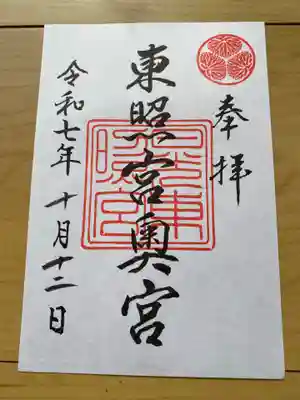 奉拝
東照宮奥宮
令和七年 十月十二日